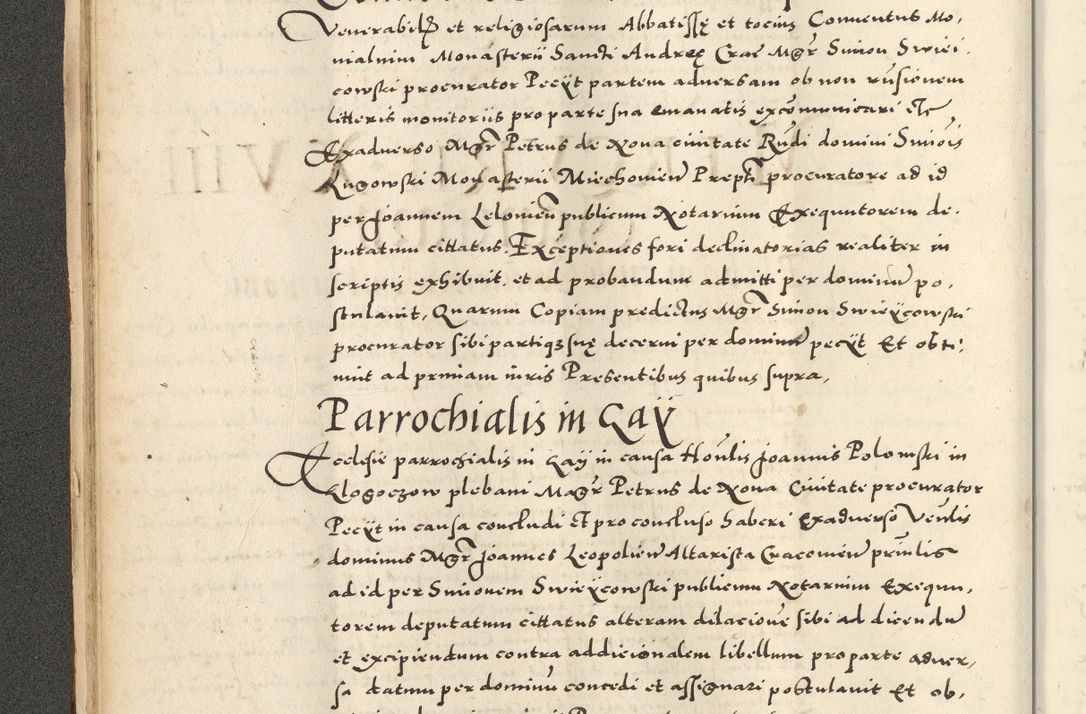 Venerabiliū et religiosarum Abbatissę et tocius Conuentus Mo,
nialium Monasterii Sancti Andreę Crac Mgr Simon Swiei
cowski procurator Pecÿt partem aduersam ob non rūsionem
litteris monitoriis pro parte sua emanatis excōmunicari Etc
Exaduerso Mgr Petrus de Noua ciuitate Rūdi domini Simōis
Lugowski Monasterii Miechouien Prepti procuratore ad id
per Joannem Lelouieū publicum Notarium Exequutorem de,
putatum cittatus. Exceptiones fori declinatorias realiter in
scriptis exhibuit, et ad probandum admitti per dominū po,
stulauit, Quarum Copiam predictus Mgr Simon Swieÿcowski
procurator sibi partiqz suę decerni per dominū pecÿt Et obti,
nuit ad prmiam iuris Presentibus quibus supra,
Parrochialis in Gaÿ
Ecclesie parrochialis in Gaÿ in causa Honlis Joannis Polowski in
Klogoczow plebani Magr Petrus de Noua Ciuitate procurator
Pecÿt in causa concludi et pro concluso haberi Exaduerso Venlis
dominus Mgr Joannes Leopolien Altarista Cracouien prinlis
ad id per Simonem Swieÿcowski publicum Notarium Exequu,
torem deputatum cittatus alteram dilacionē sibi ad dicendū
et excipiendum contra addicionalem libellum pro parte aduer,
sa datum per dominū concedi et assignari postulauit Et ob,